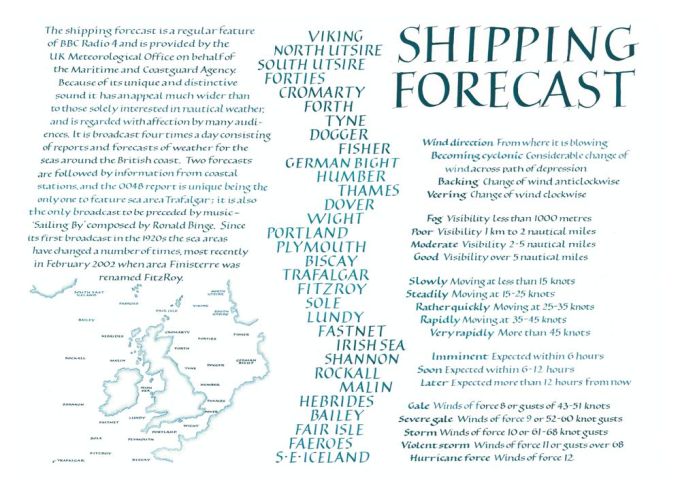 The shipping forecast is a regular feature
of BBC Radio 4 and is provided by the
UK Meteorological Office on behalf of
the Maritime and Coastguard Agency.
Because of its unique and distinctive
sound it has an appeal much wider than
to those solely interested in nautical weather,
and is regarded with affection by many audi-
ences. It is broadcast four times a day consisting
of reports and forecasts of weather for the
seas around the British coast. Two forecasts
are followed by information from coastal
stations, and the 0048 report is unique being the
only one to feature sea area Trafalgar; it is also
the only broadcast to be preceded by music –
'Sailing By' composed by Ronald Binge. Since
its first broadcast in the 1920s the sea areas
have changed a number of times, most recently
in February 2002 when area Finisterre was
renamed FitzRoy.
VIKING
NORTH UTSIRE
SOUTH UTSIRE
FORTIES
CROMARTY
FORTH
TYNE
DOGGER
FISHER
GERMAN BIGHT
HUMBER
THAMES
DOVER
WIGHT
PORTLAND
PLYMOUTH
BISCAY
TRAFALGAR
FITZROY
SOLE
LUNDY
FASTNET
IRISH SEA
SHANNON
ROCKALL
MALIN
HEBRIDES
BAILEY
FAIR ISLE
FAEROES
S·E·ICELAND
SHIPPING
FORECAST
Wind direction From where it is blowing
Becoming cyclonic Considerable change of
wind across path of depression
Backing Change of wind anticlockwise
Veering Change of wind clockwise
Fog Visibility less than 1000 metres
Poor Visibility 1 km to 2 nautical miles
Moderate Visibility 2-5 nautical miles
Good Visibility over 5 nautical miles
Slowly Moving at less than 15 knots
Steadily Moving at 15-25 knots
Rather quickly Moving at 25-35 knots
Rapidly Moving at 35-45 knots
Very rapidly More than 45 knots
Imminent Expected within 6 hours
Soon Expected within 6-12 hours
Later Expected more than 12 hours from now
Gale Winds of force 8 or gusts of 43-51 knots
Severe gale Winds of force 9 or 52-60 knot gusts
Storm Winds of force 10 or 61-68 knot gusts
Violent storm Winds of force 11 or gusts over 68
Hurricane force Winds of force 12
SOUTH EAST
ICELAND
FAEROES
FAIR ISLE
VIKING
NORTH
UTSIRE
SOUTH
UTSIRE
BAILEY
HEBRIDES
CROMARTY
FORTIES
FISHER
FORTH
ROCKALL
MALIN
TYNE
DOGGER
GERMAN
BIGHT
IRISH
SEA
HUMBER
SHANNON
THAMES
FASTNET
LUNDY
DOVER
WIGHT
PORTLAND
SOLE
PLYMOUTH
FITZROY
TRAFALGAR
BISCAY